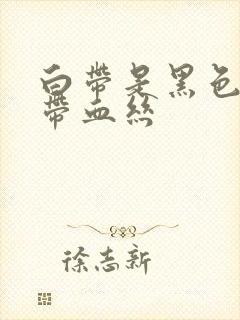 白帶是黑色
帶血絲
徐志新